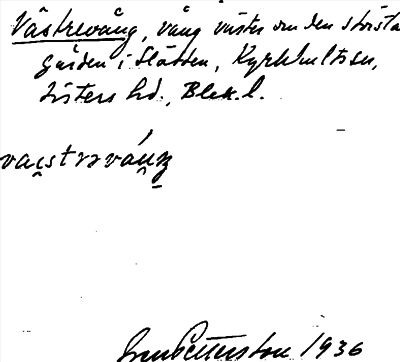 Västrevång, vång väster om den största
gården i Slätten, Kyrkhults sn,
Listers hd., Blek. l.
vaestrəváuŋ
Sven Pettersson 1936